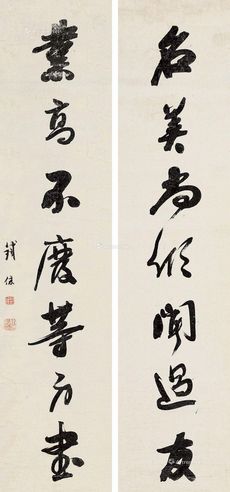 名美尚欣聞過友
業高不廢等身書
鐵保